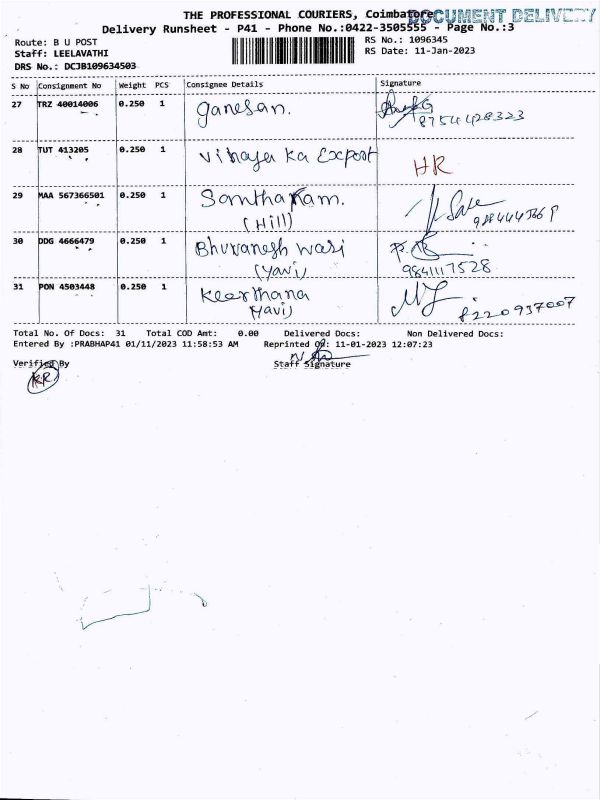 THE PROFESSIONAL COURIERS, Coimbatore
DOCUMENT DELIVERY
Delivery Runsheet - P41 - Phone No.:0422-3505555 - Page No.:3
Route: B U POST
RS No.: 1096345
Staff: LEELAVATHI
RS Date: 11-Jan-2023
DRS No.: DCJB109634503
S No Consignment No Weight PCS Consignee Details Signature
27 TRZ 40014006 0.250 1 Ganesan.
8754428323
28 TUT 413205 0.250 1 Vihaya Ka Export HR
29 MAA 567366501 0.250 1 Santharam.
(Hill)
30 DDG 4666479 0.250 1 Bhuvanesh wari
(Yavi) 9841117528
31 PON 4503448 0.250 1 Keerthana
(Yavi) 8220937007
Total No. Of Docs: 31 Total COD Amt: 0.00 Delivered Docs: Non Delivered Docs:
Entered By :PRABHAP41 01/11/2023 11:58:53 AM Reprinted On: 11-01-2023 12:07:23
Verified By Staff Signature
RR